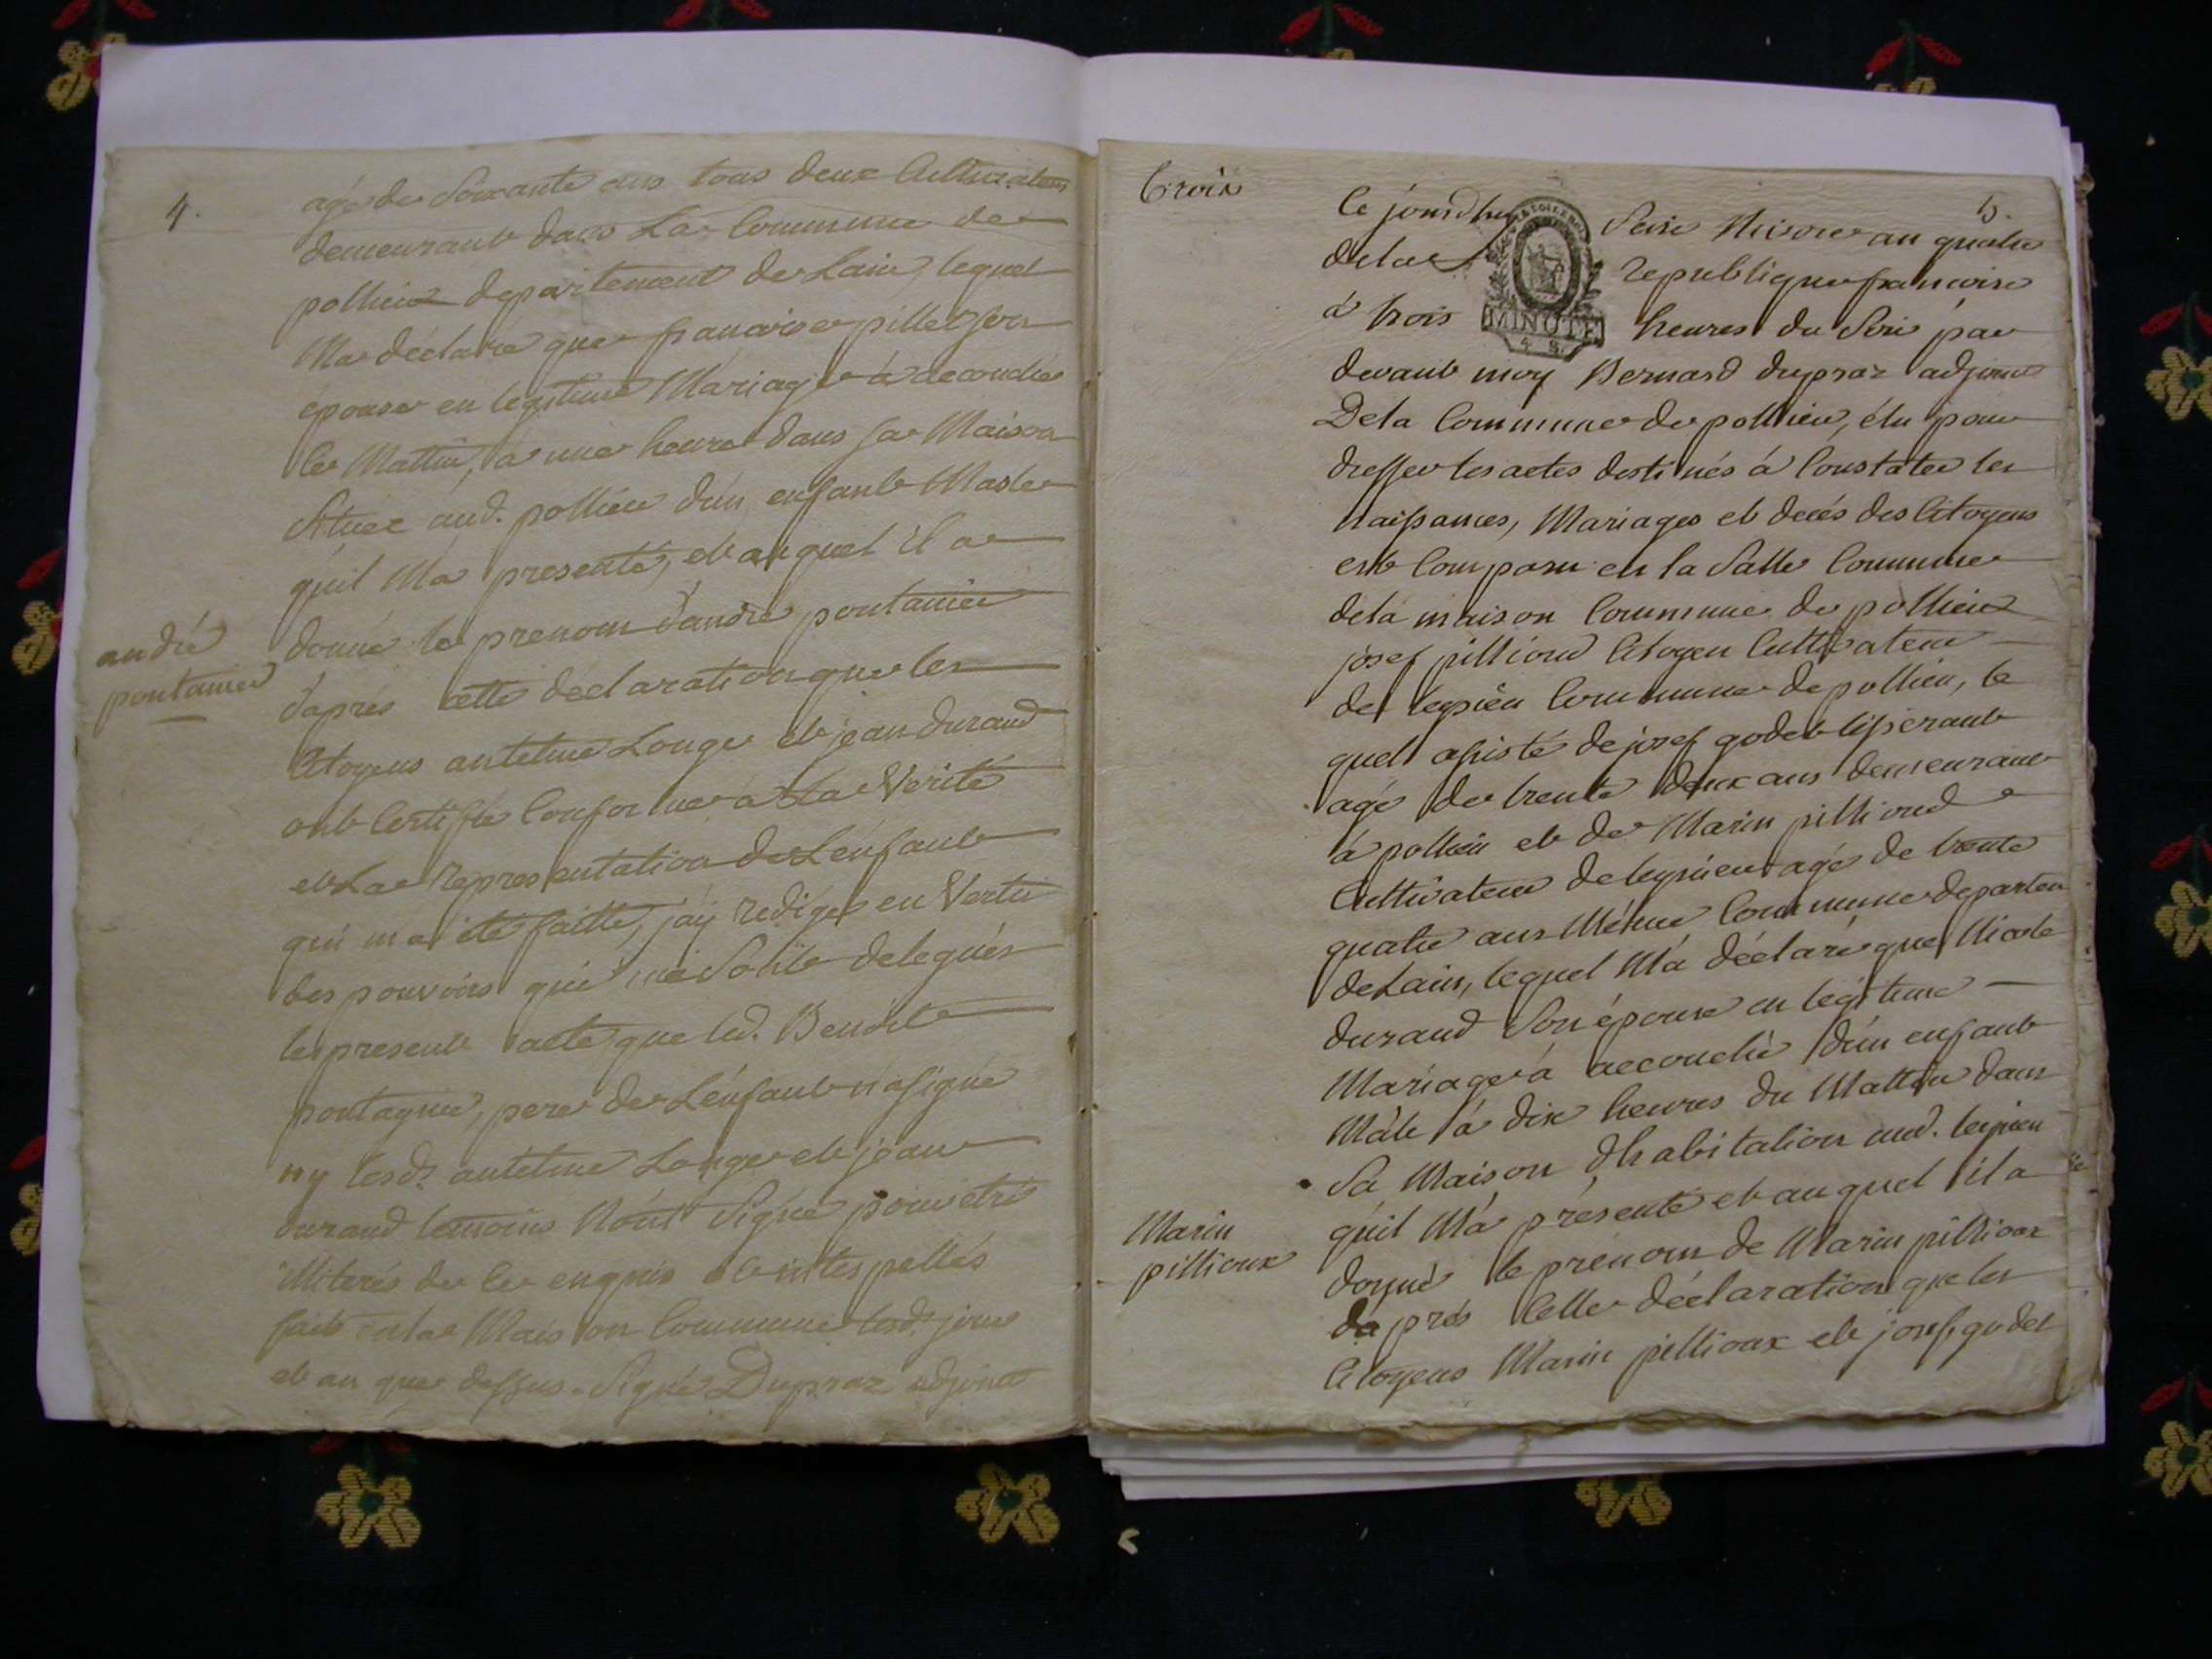 4.
agé de Soixante ans tous deux Cultivateurs
demeurant dans La Commune de
pollieu departement de Lain, lequel
Ma déclaré que francoise pillet son
épouse en legitime Mariage à accouchée
ce Mattin, à une heure dans sa Maison
Située aud. pollieu d'un enfant Masle
qu'il Ma presenté, et auquel il a
donné le prenom d'andré pontanier
andré
pontanier
d'aprés cette déclaration que les
Citoyens antelme Longe et jean durand
ont Certifié Conforme à La Verité
et La représentation de L'enfant
qui ma été faitte, j'ay redigé en Vertu
des pouvoirs qui me Sont delegués
le present acte que led. Benoit
pontagnier, pere de L'enfant n'a signé
ny lesd. antelme Longe et jean
durand temoins N'ont Signé pour etre
illiterés de ce enquis et interpellés
fait en la Maison Commune lesd. jour
et an que dessus. Signé Dupraz adjoint
Troix
5.
Ce jourdhuy Seize Nivose an quatre
de la republique francoise
à trois heures du Soir par
MINUTE
devant moy Bernard dupraz adjoint
De la Commune de pollieu, élu pour
dresser les actes destinés à Constater les
naissances, Mariages et decés des Citoyens
est Comparu en la Salle Commune
de la maison Commune de pollieu
josef pillioud Citoyen Cultivateur
de leyrieu Commune de pollieu, le
quel assisté de josef godet tisserant
agé de trente deux ans demeurant
à pollieu et de Marin pillioud
Cultivateur de leyrieu agé de trente
quatre ans Même Commune departem
de Lain, lequel M'a déclaré que Nicole
durand Son épouse en legitime
Mariage à accouchée d'un enfant
Mâle à dix heures du Mattin dans
Sa Maison d'habitation aud. leyrieu
qu'il M'a présenté et auquel il a
donné le prénom de Marin pillioux
Marin
pillioux
d'aprés Cette déclaration que les
Citoyens Marin pillioux et josef godet